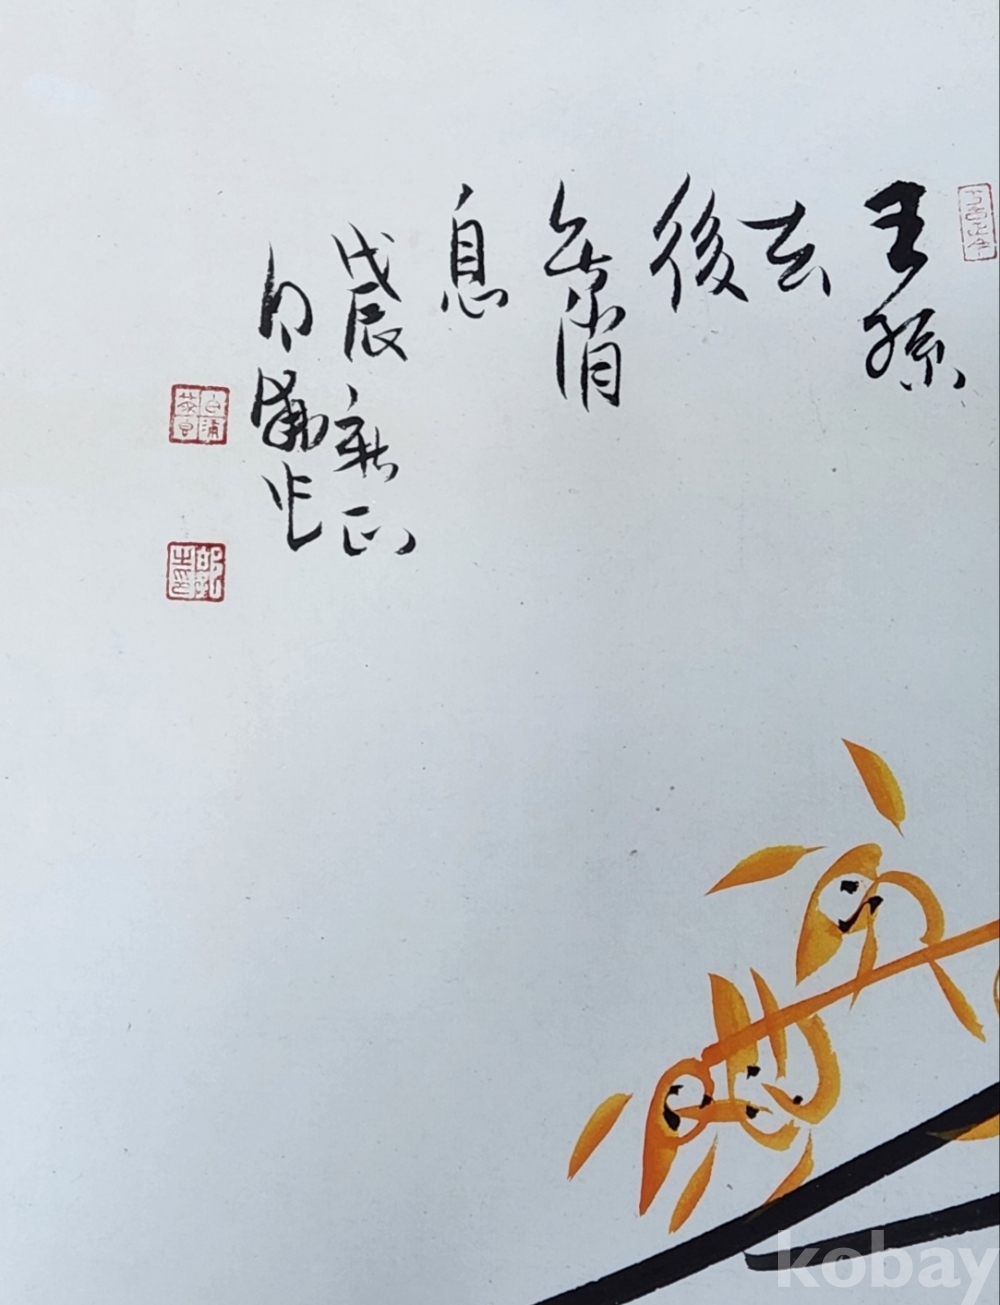 王孫
去
後
無消
息
戊辰新正
作
kobay